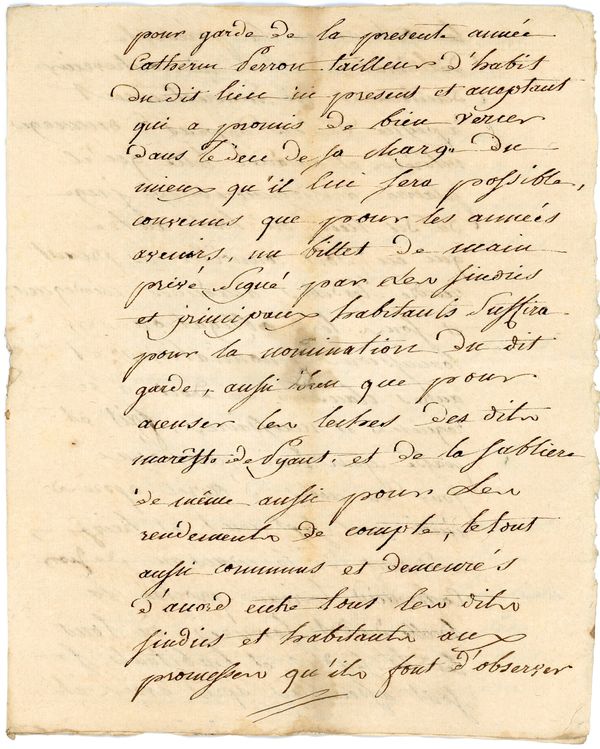 pour garde de la presente année
Catherin Perron tailleur d'habit
du dit lieu ici present et acceptant
qui a promis de bien verser
dans le deu de sa charge du
mieux qu'il lui sera possible,
convenus que pour les années
avenirs, un billet de main
privé signé par les sindics
et principaux habitants suffira
pour la nomination du dit
garde, aussi bien que pour
acenser les leches des dits
marêts de et de la sabliere
de même aussi pour les
rendements de compte, le tout
aussi convenus et demeurés
d'acord entre tous les dits
sindics et habitants aux
promesses qu'ils font d'observer